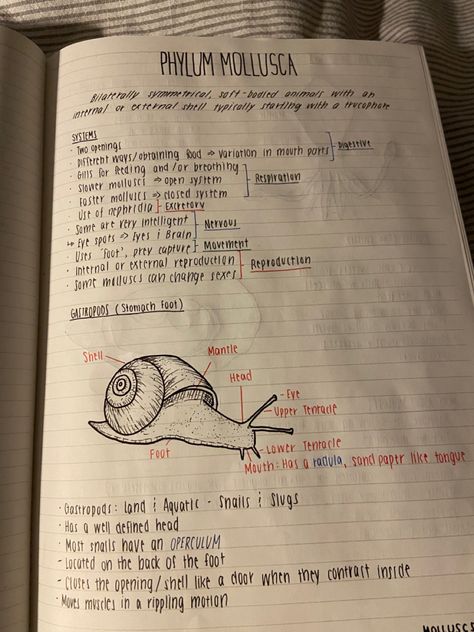 PHYLUM MOLLUSCA
Bilaterally symmetrical, soft-bodied animals with an
internal or external shell typically starting with a trocophore
SYSTEMS
· Two openings
· Different ways/obtaining food => variation in mouth parts Digestive
· Gills for feeding and/or breathing
· Slower molluscs => open system Respiration
· Faster molluscs => closed system
· Use of nephridia Excretory
· Some are very intelligent Nervous
↳ Eye spots => Eyes & Brain
· Uses 'foot', prey capture Movement
· Internal or external reproduction Reproduction
· Some molluscs can change sexes
GASTROPODS (Stomach Foot)
Shell
Mantle
Head
- Eye
Upper Tentacle
Foot
Lower Tentacle
Mouth: Has a radula, sand paper like tongue
· Gastropods: Land & Aquatic - Snails & Slugs
· Has a well defined head
· Most snails have an OPERCULUM
· Located on the back of the foot
· Closes the opening/shell like a door when they contract inside
· Moves muscles in a rippling motion